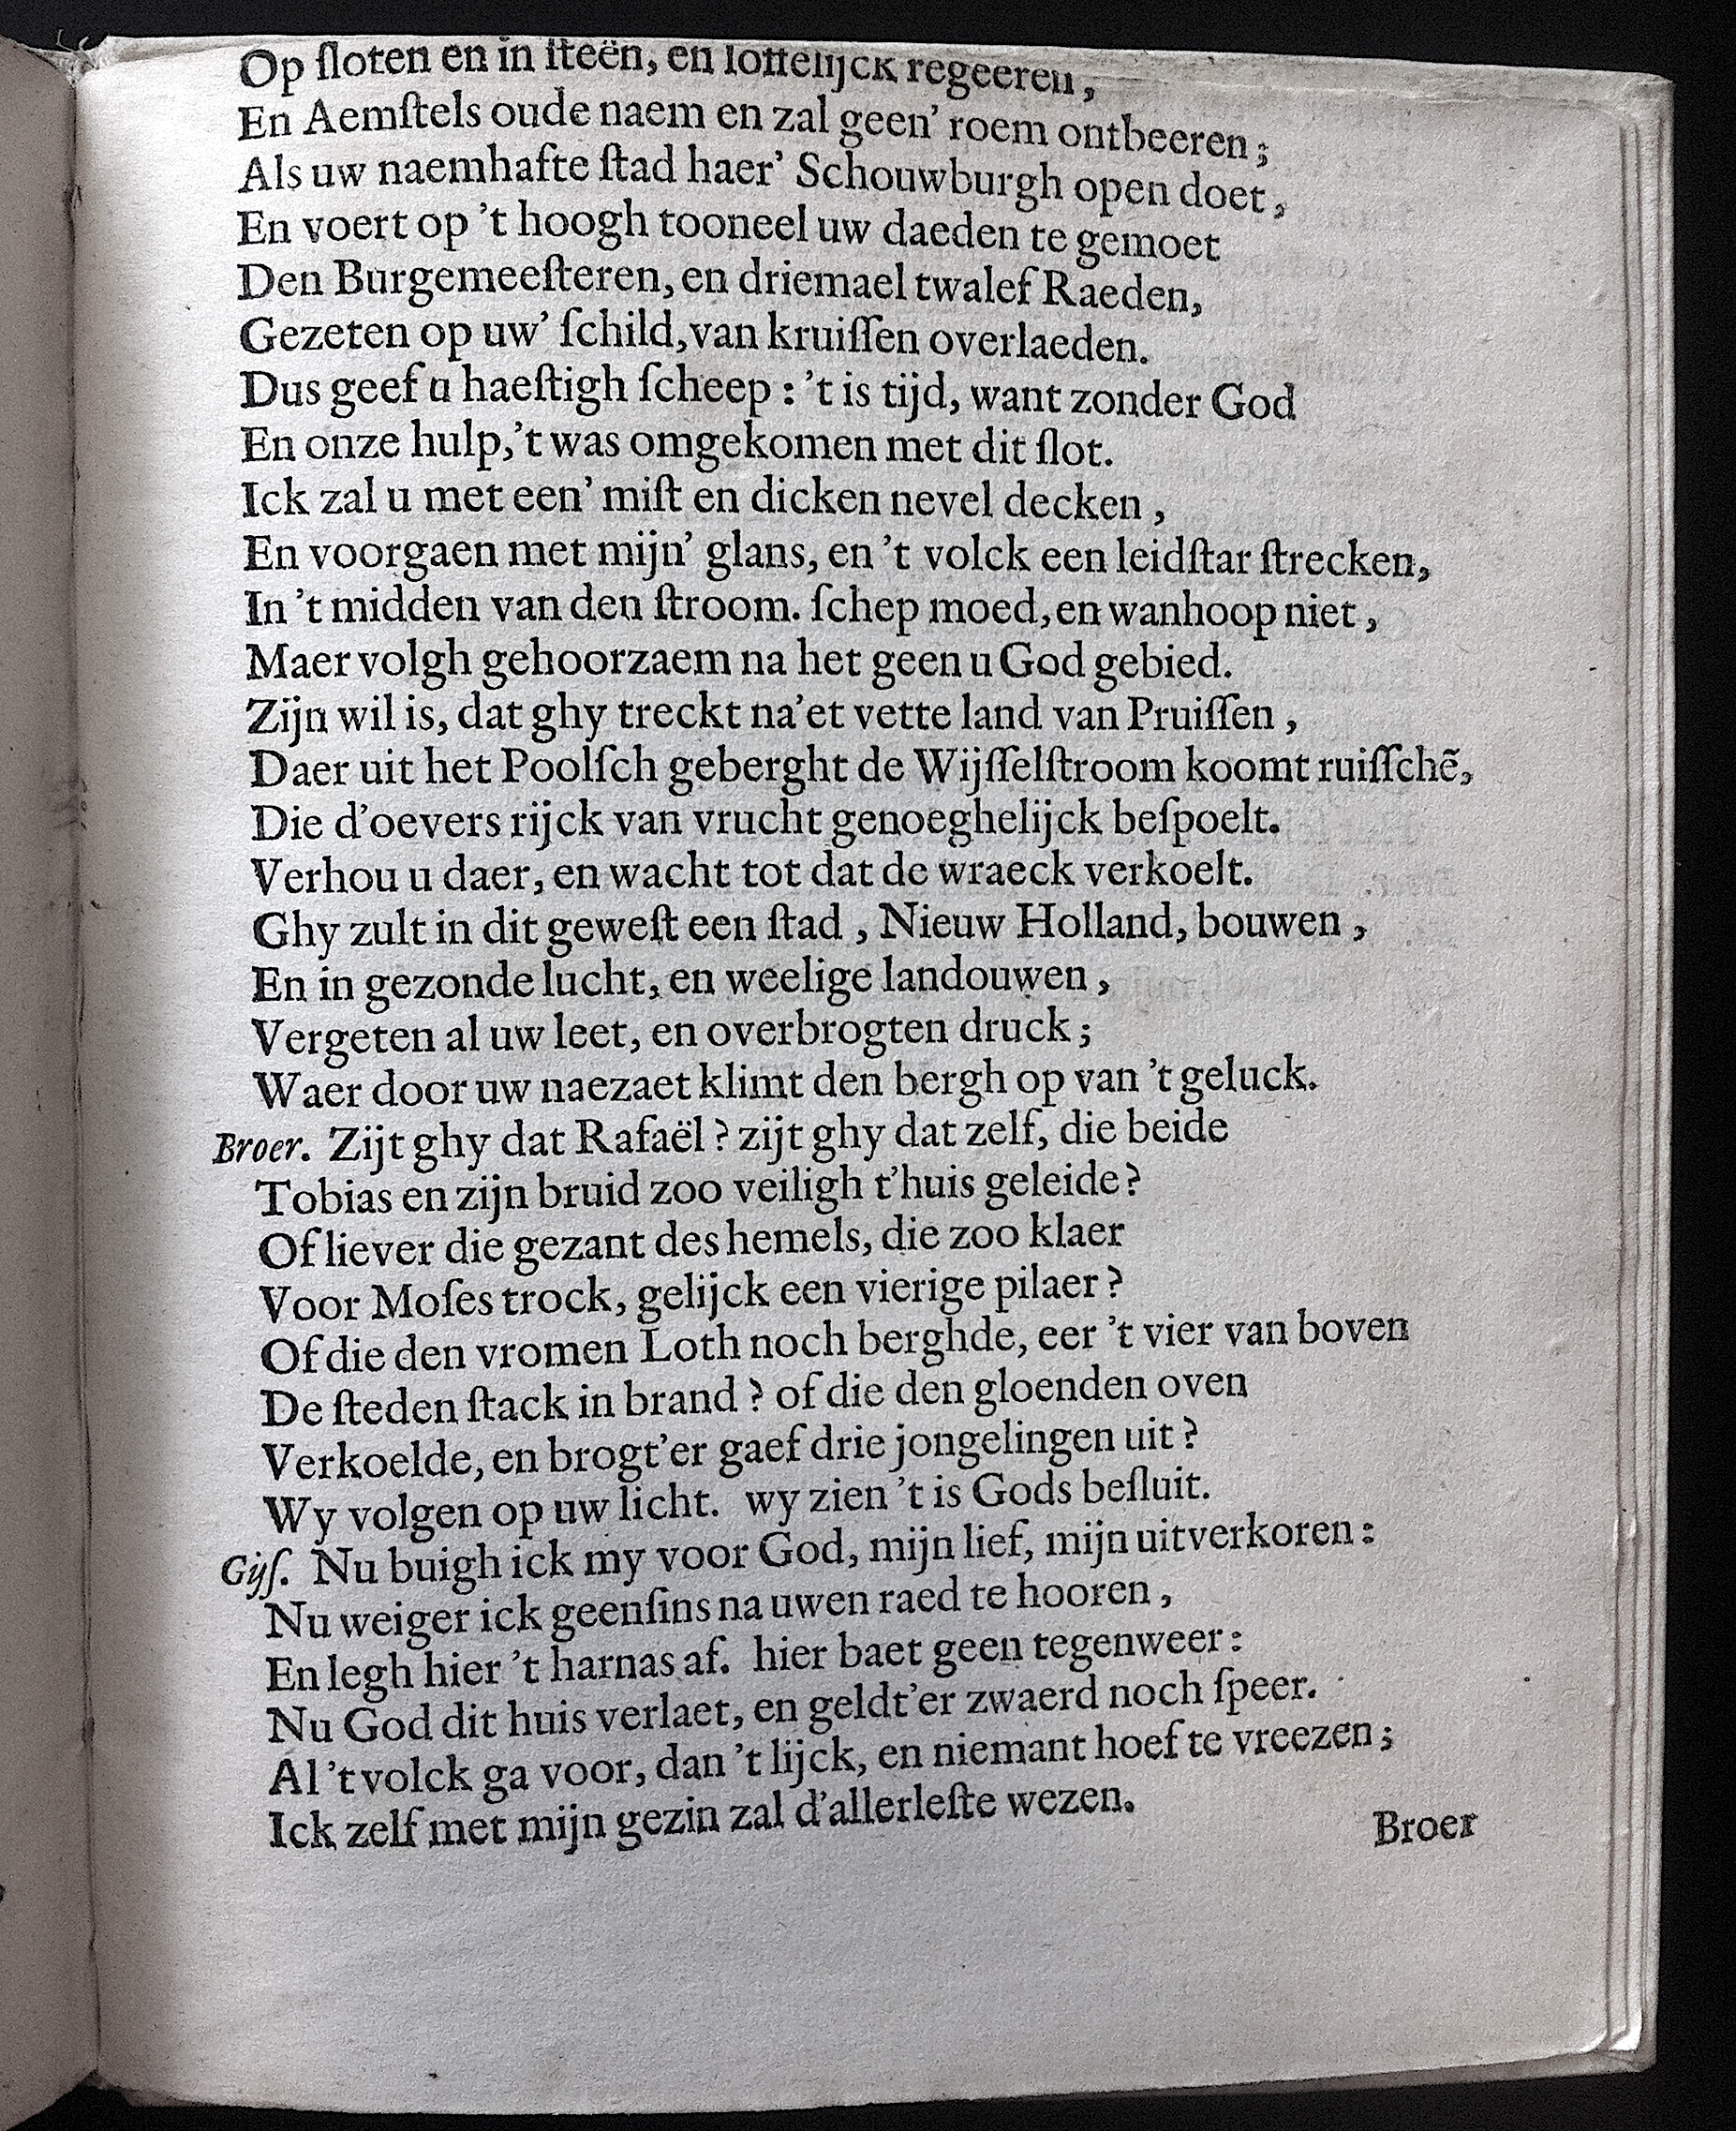 Op ſloten en in ſteën, en lottelijck regeeren,
En Aemſtels oude naem en zal geen’ roem ontbeeren;
Als uw naemhafte ſtad haer’ Schouwburgh open doet,
En voert op ’t hoogh tooneel uw daeden te gemoet
Den Burgemeeſteren, en driemael twalef Raeden,
Gezeten op uw’ ſchild, van kruiſſen overlaeden.
Dus geef u haeſtigh ſcheep: ’t is tijd, want zonder God
En onze hulp, ’t was omgekomen met dit ſlot.
Ick zal u met een’ miſt en dicken nevel decken,
En voorgaen met mijn’ glans, en ’t volck een leidſtar ſtrecken,
In ’t midden van den ſtroom. ſchep moed, en wanhoop niet,
Maer volgh gehoorzaem na het geen u God gebied.
Zijn wil is, dat ghy treckt na’et vette land van Pruiſſen,
Daer uit het Poolſch geberght de Wijſſelſtroom koomt ruiſſchẽ,
Die d’oevers rijck van vrucht genoeghelijck beſpoelt.
Verhou u daer, en wacht tot dat de wraeck verkoelt.
Ghy zult in dit geweſt een ſtad, Nieuw Holland, bouwen,
En in gezonde lucht, en weelige landouwen,
Vergeten al uw leet, en overbrogten druck;
Waer door uw naezaet klimt den bergh op van ’t geluck.
Broer. Zijt ghy dat Rafaël? zijt ghy dat zelf, die beide
Tobias en zijn bruid zoo veiligh t’huis geleide?
Of liever die gezant des hemels, die zoo klaer
Voor Moſes trock, gelijck een vierige pilaer?
Of die den vromen Loth noch berghde, eer ’t vier van boven
De ſteden ſtack in brand? of die den gloenden oven
Verkoelde, en brogt’er gaef drie jongelingen uit?
Wy volgen op uw licht. wy zien ’t is Gods beſluit.
Gijſ. Nu buigh ick my voor God, mijn lief, mijn uitverkoren:
Nu weiger ick geenſins na uwen raed te hooren,
En legh hier ’t harnas af. hier baet geen tegenweer:
Nu God dit huis verlaet, en geldt’er zwaerd noch ſpeer.
Al ’t volck ga voor, dan ’t lijck, en niemant hoef te vreezen;
Ick zelf met mijn gezin zal d’allerleſte wezen.
Broer